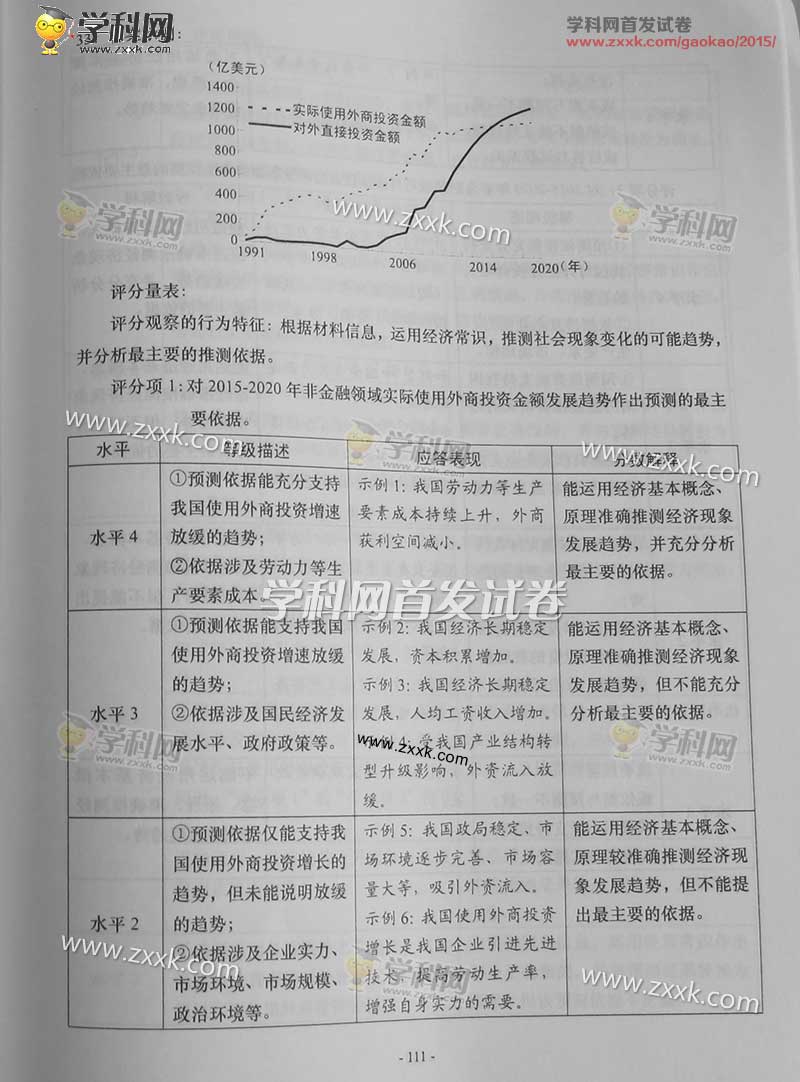 学科网
www.zxxk.com
学科网首发试卷
www.zxxk.com/gaokao/2015/
(亿美元)
1400
1200
1000
800
600
400
200
0
实际使用外商投资金额
对外直接投资金额
1991 1998 2006 2014 2020(年)
评分量表：
评分观察的行为特征：根据材料信息，运用经济常识，推测社会现象变化的可能趋势，
并分析最主要的推测依据。
评分项 1：对 2015-2020 年非金融领域实际使用外商投资金额发展趋势作出预测的最主
要依据。
水平 等级描述 应答表现 分数解释
水平 4
①预测依据能充分支持
我国使用外商投资增速
放缓的趋势；
②依据涉及劳动力等生
产要素成本。
示例 1：我国劳动力等生产
要素成本持续上升，外商
获利空间减小。
能运用经济基本概念、
原理准确推测经济现象
发展趋势，并充分分析
最主要的依据。
水平 3
①预测依据能支持我国
使用外商投资增速放缓
的趋势；
②依据涉及国民经济发
展水平、政府政策等。
示例 2：我国经济长期稳定
发展，资本积累增加。
示例 3：我国经济长期稳定
发展，人均工资收入增加。
示例 4：受我国产业结构转
型升级影响，外资流入放
缓。
能运用经济基本概念、
原理准确推测经济现象
发展趋势，但不能充分
分析最主要的依据。
水平 2
①预测依据仅能支持我
国使用外商投资增长的
趋势，但未能说明放缓
的趋势；
②依据涉及企业实力、
市场环境、市场规模、
政治环境等。
示例 5：我国政局稳定、市
场环境逐步完善、市场容
量大等，吸引外资流入。
示例 6：我国使用外商投资
增长是我国企业引进先进
技术，提高劳动生产率，
增强自身实力的需要。
能运用经济基本概念、
原理较准确推测经济现
象发展趋势，但不能提
出最主要的依据。
- 111 -